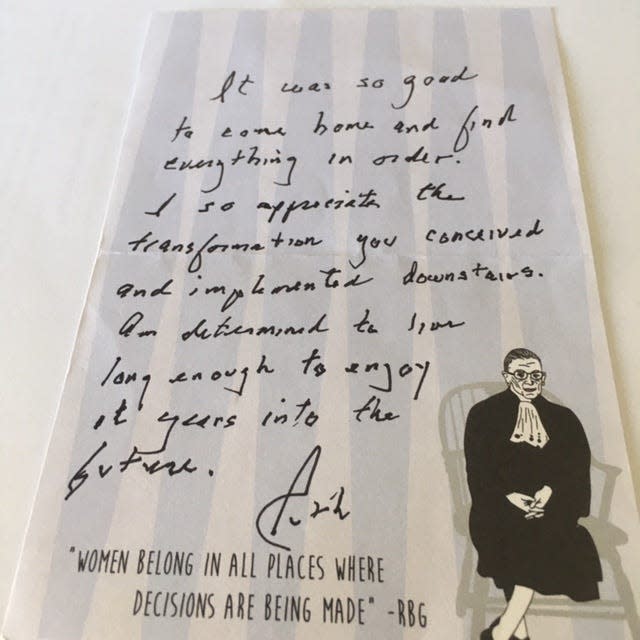 It was so good
to come home and find
everything in order.
I so appreciate the
transformation you conceived
and implemented downstairs.
Am determined to live
long enough to enjoy
it years into the
future.
"WOMEN BELONG IN ALL PLACES WHERE
DECISIONS ARE BEING MADE" -RBG